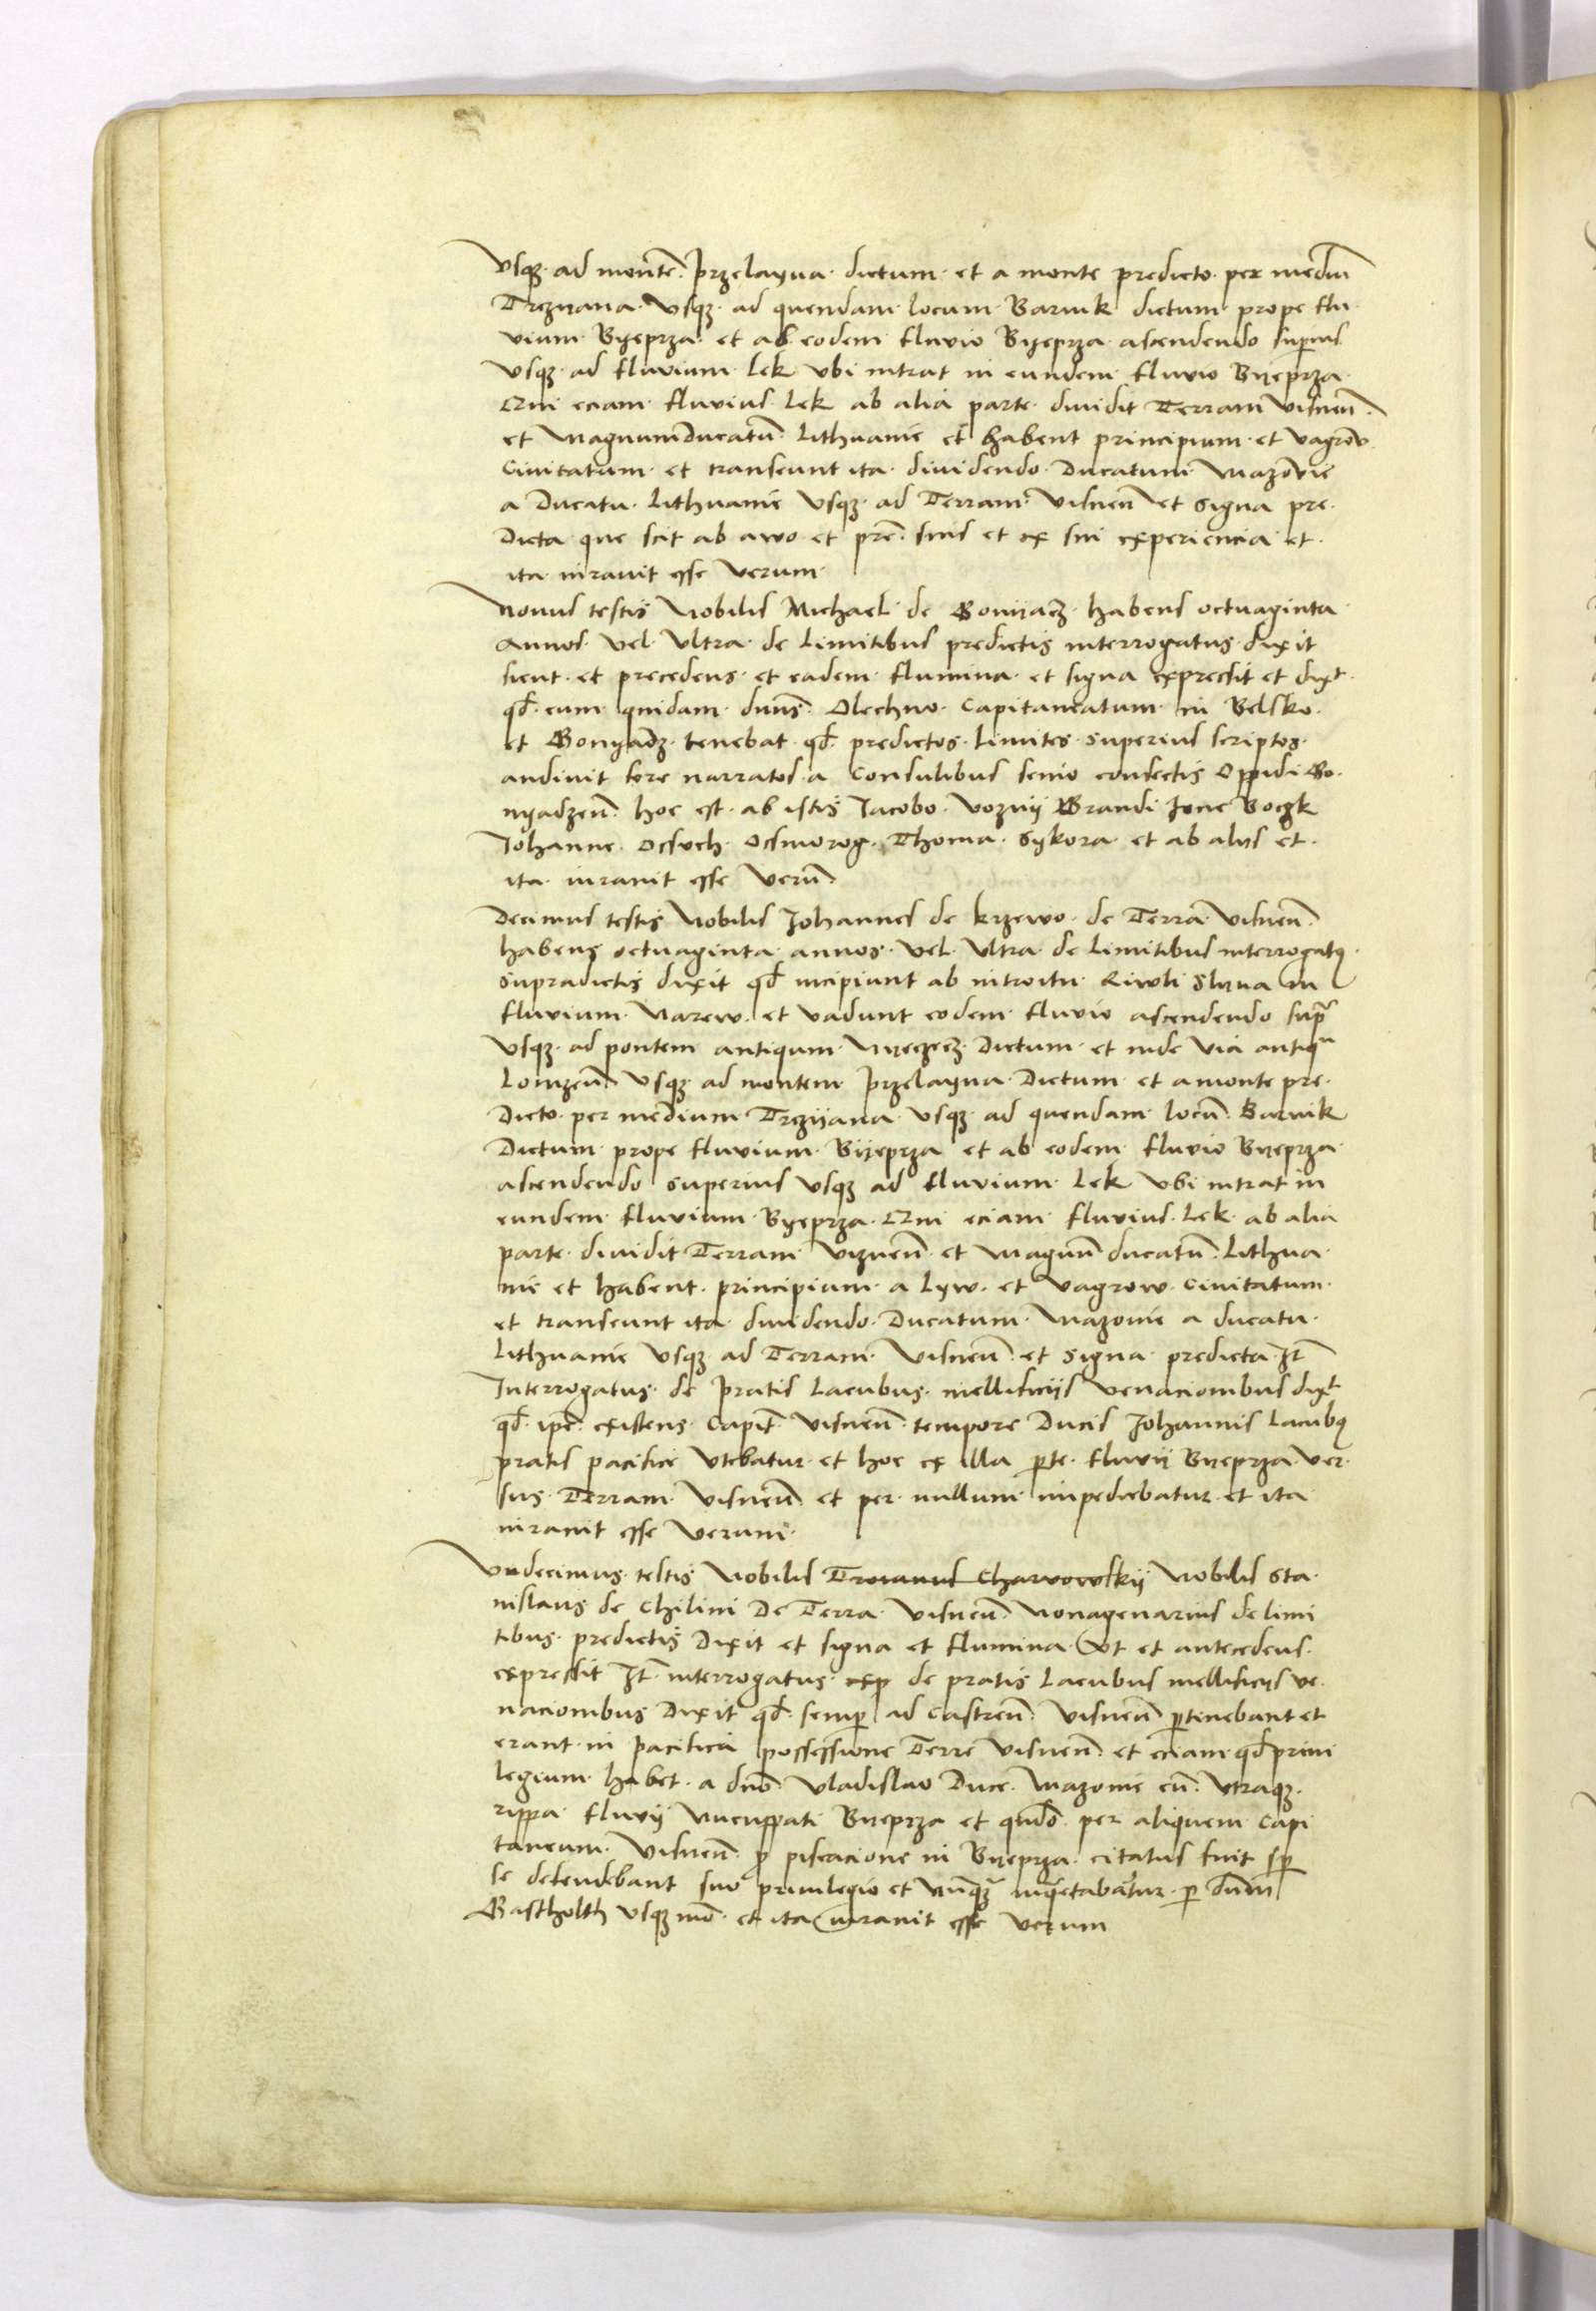 Vsqꝫ ad montē przelayua dictum et a monte predicto per mediū
Trezyana Vsqꝫ ad quendam locum Barwik dictum prope flu
vium Byeprza et ab eodem fluvio Byeprza ascendendo superius
Vsqꝫ ad fluvium Lek Vbi intrat in eundem fluvio Byeprza
Qui eciam fluvius Lek ab alia parte dividit Terram Visneñ
et Magnum ducatū Lithvanie et habent principium et Vagrow
Civitatum et transeunt ita dividendo Ducatum Mazovie
a Ducatu Lithvanie Vsqꝫ ad Terram Visneñ et Signa pre
dicta que scit ab awo et prē suis et ex sui experiencia et
ita iuravit esse Verum
Nonus testis Nobilis Michael de Gonyacz habens octuaginta
Annos vel Vltra de Limitibus predictis interrogatus dixit
sicut et precedens et eadem flumina et signa expressit et dixt
qđ cum quidam dnns Olechno Capitaneatum in Belsko
et Gonyadz tenebat qđ predictos limites superius scriptos
audivit fore narratos a Consulibus senio confectis Oppidi Go
nyadzeñ hoc est ab istis Jacobo Voznij Brandi Jene Boczk
Johanne Ocsvch Ocsmorog Thoma Sykora et ab alijs et
ita iuravit esse Verū
Decimus testis Nobilis Johannes de Krzewo de Terra Visneñ
habens octuaginta annos vel Vltra de Limitibus interrogatꝰ
supradictis dixit qđ incipiunt ab introitu Riwli Slyna in
fluvium Narew et vadunt eodem fluvio ascendendo supra
Vsqꝫ ad pontem antiqum Myeczecz Dictum et inde via antiqᵃ
Lomzeñ Vsqꝫ ad montem przelayua Dictum et a monte pre
dicto per medium Trezyana Vsqꝫ ad quendam locū Barwik
Dictum prope fluvium Byeprza et ab eodem fluvio Byeprza
ascendendo superius Vsqꝫ ad fluvium Lek Vbi intrat in
eundem fluvium Byeprza Qui eciam fluvius Lek ab alia
parte dividit Terram Vizneñ et Magnū ducatū Lithva
nie et habent principium a Lyw et Vagrow Civitatum
et transeunt ita dividendo Ducatum Mazovie a ducatu
Lithvanie Vsqꝫ ad Terram Visneñ et signa predicta Jt̄
Interrogatus de pratis Lacubus mellificijs venacionibus dixt
qđ ipē existens Capit̄ Visneñ tempore Ducis Johannis Lacubꝰ
pratis pacifice Vtebatur et hoc ex illa pte fluvij Byeprza ver
sus Terram Visneñ et per nullum impediebatur et ita
iuravit esse Verum
Vndecimus testis Nobilis Troianus Charvowskij Nobilis Sta
nislaus de Chilini De Terra Visneñ Nonagenarius de limi
tibus predictis Dixit et signa et flumina Vt et antecedens
expressit Jt̄ interrogatus exp de pratis Lacubus mellificijs ve
nacionibus Dixit qđ semper ad Castreñ Visneñ ptinebant et
erant in pacifica possessione Terre Visneñ et eciam qđ privi
legium habet a dnō Vladislao Duce Mazovie cū Vtraqꝫ
rippa fluvij Nucuppati Byeprza et qndō per aliquem Capi
taneum Visneñ p piscacione in Byeprza citatus fuit sp
se defendebant suo privilegio et nūqꝫ inquietabatur p dnm
Gastholth Vsqꝫ mō et ita iuravit esse Verum